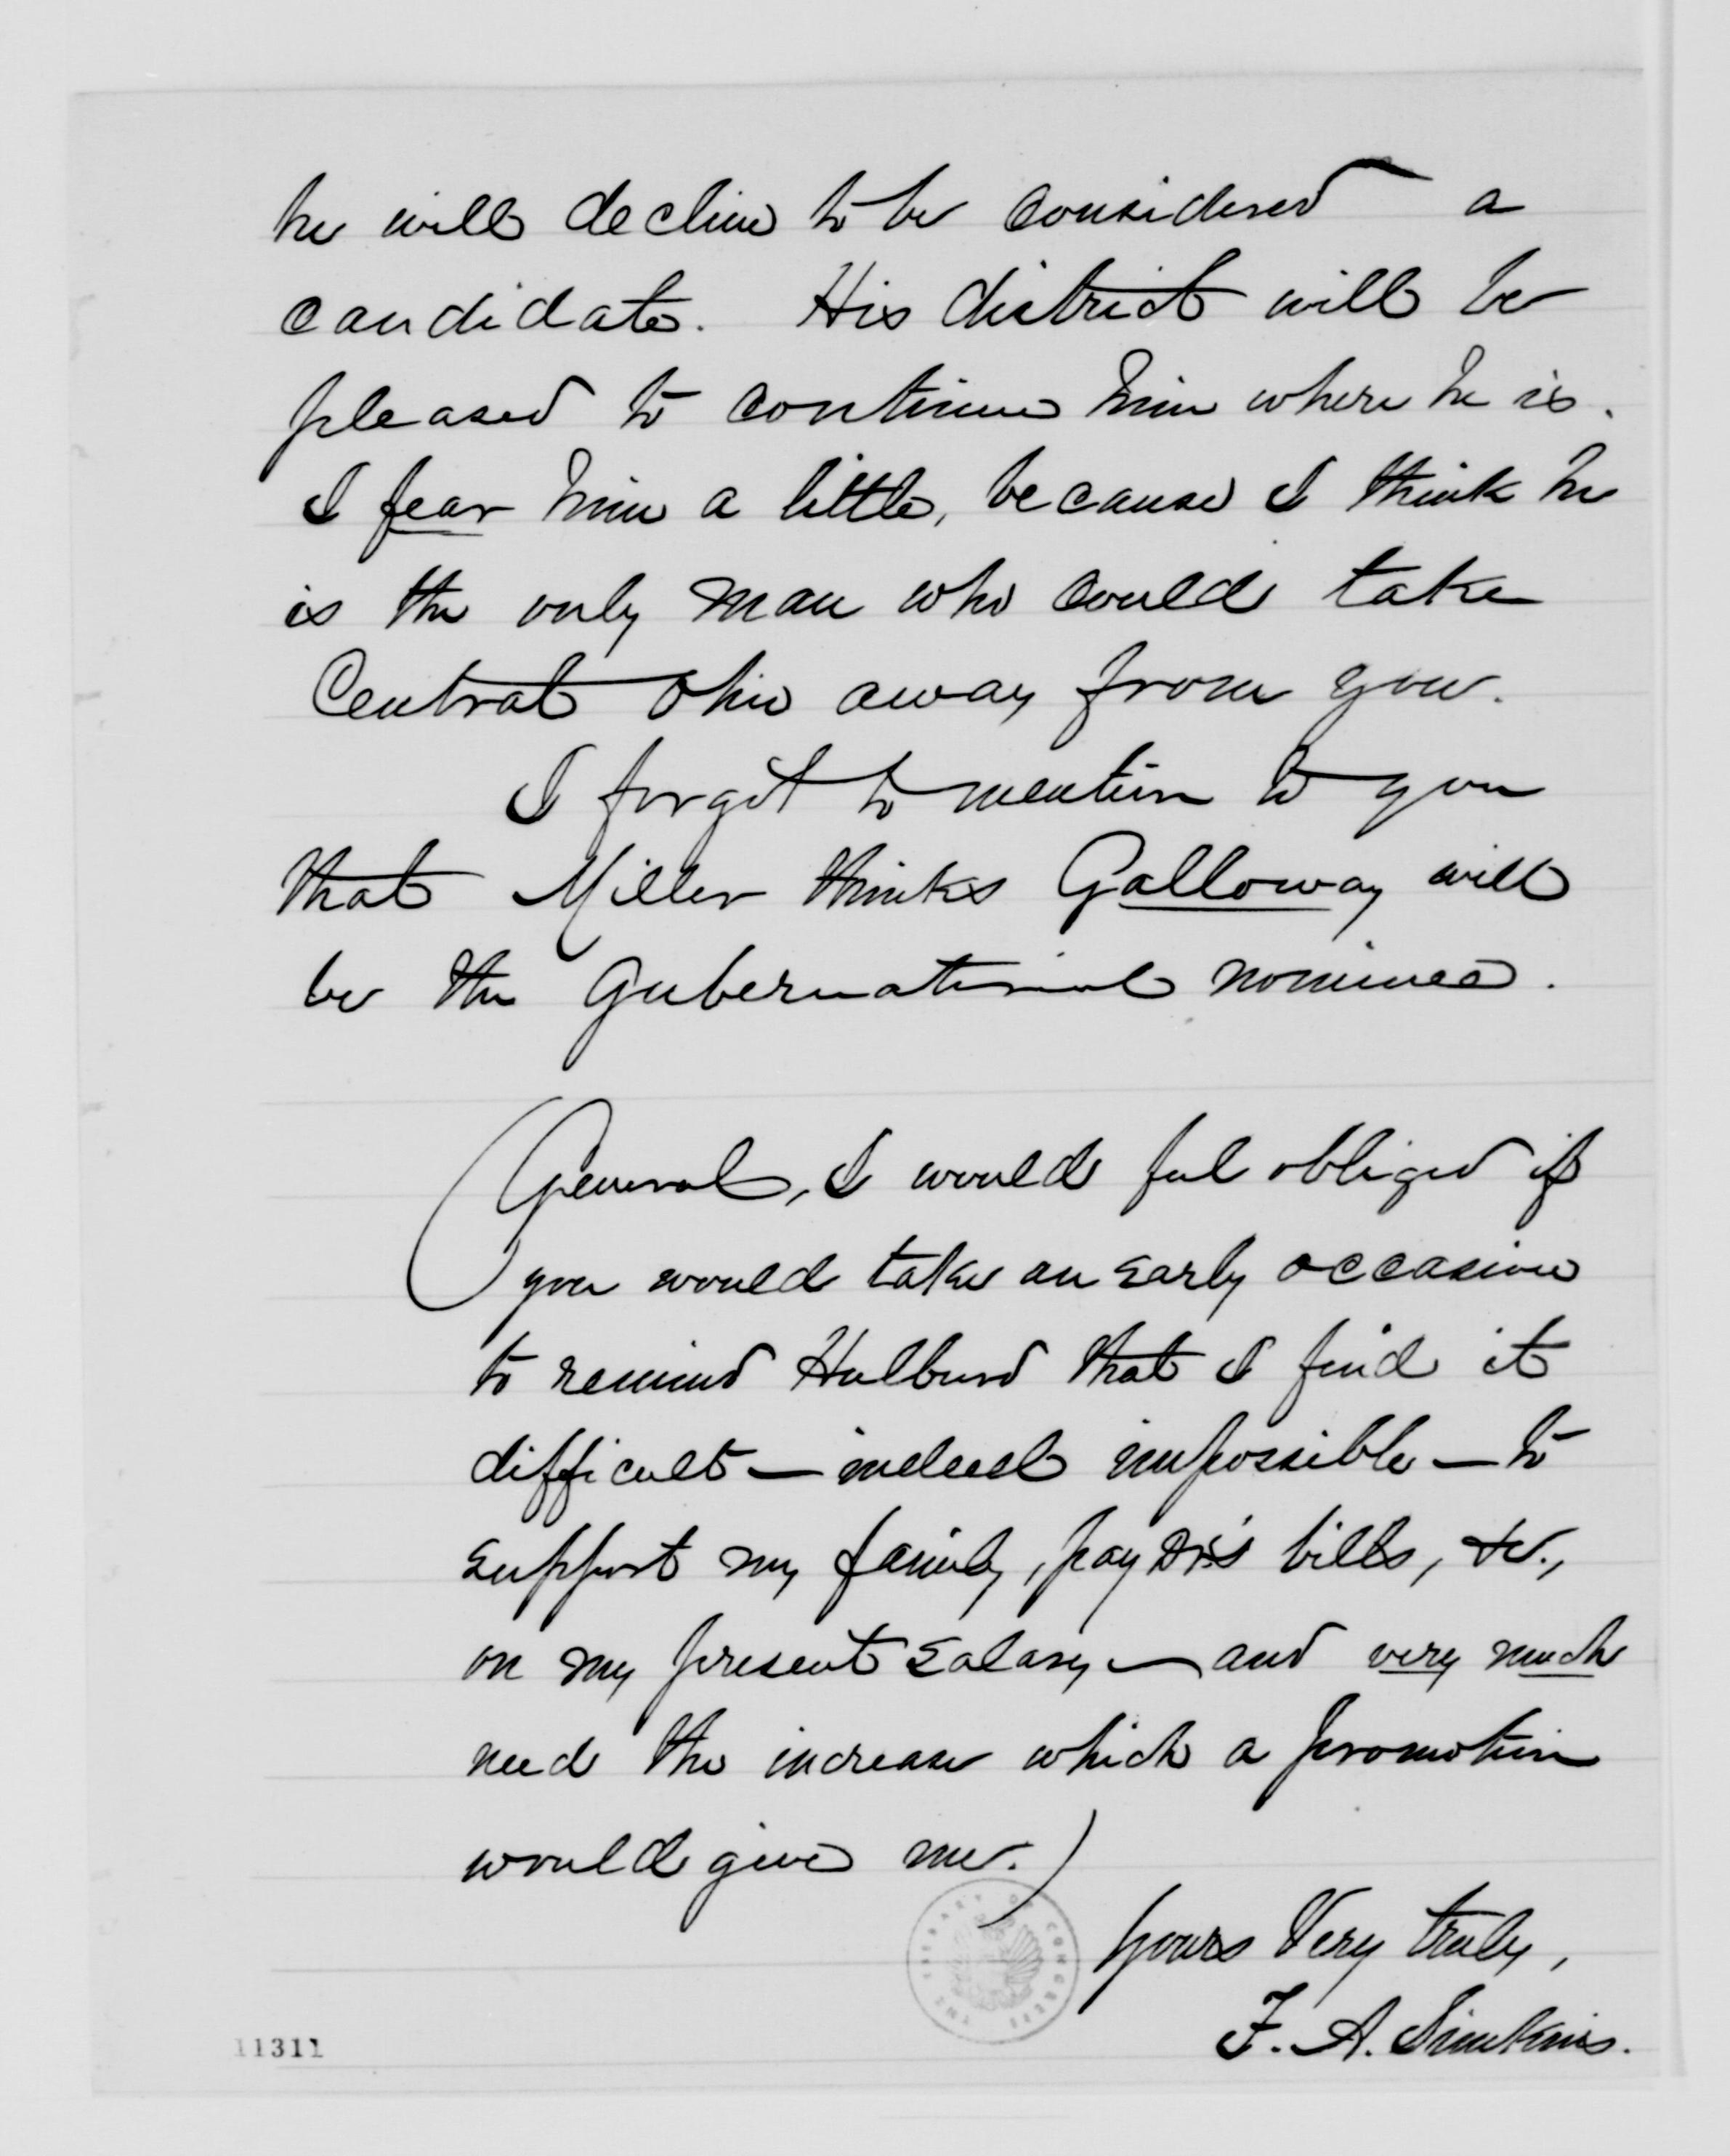 he will decline to be considered a
candidate. His district will be
pleased to continue him where he is.
I fear him a little, because I think he
is the only man who could take
Central Ohio away from you.
I forgot to mention to you
that Miller thinks Galloway will
be the Gubernatorial nominee.
(General, I would feel obliged if
you would take an early occasion
to remind Hulburd that I find it
difficult — indeed impossible — to
support my family, pay Dr's bills, &c.,
on my present salary — and very much
need the increase which a promotion
would give me.)
Yours Very truly,
F. A. Simkins.
THE LIBRARY OF CONGRESS
11311